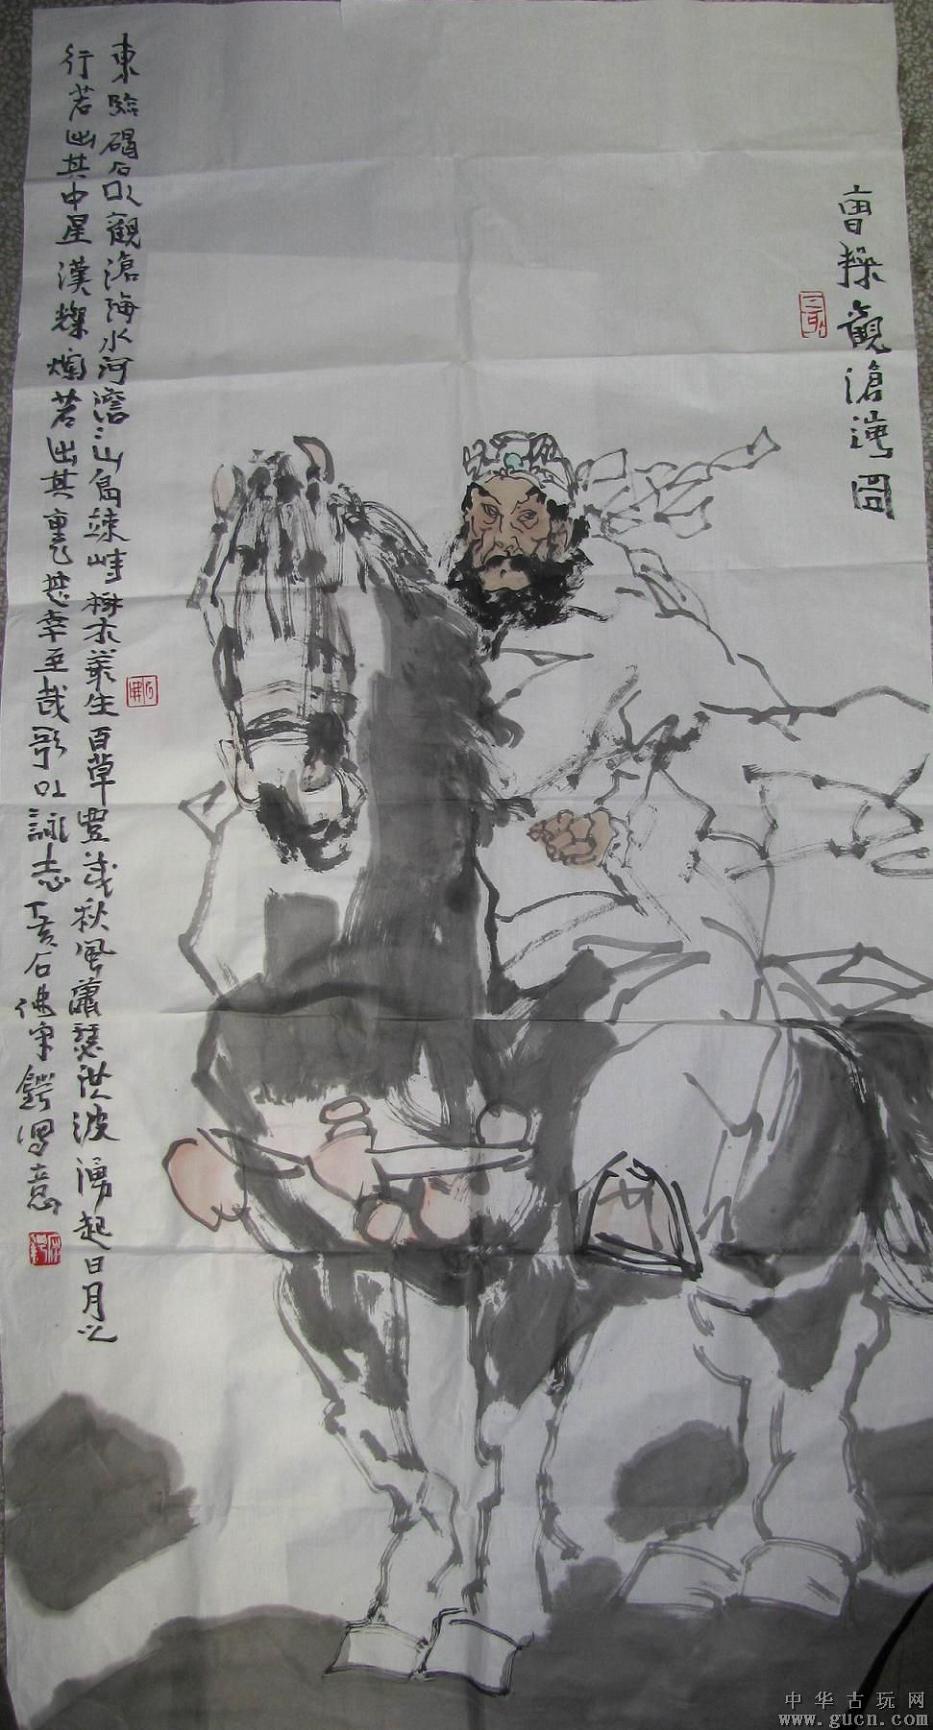 曹操觀滄海圖
東臨碣石以觀滄海水何澹〻山島竦峙樹木叢生百草豐茂秋風蕭瑟洪波湧起日月之
行若出其中星漢燦爛若出其裏甚幸至哉歌以詠志
石佛
寫意
中华古玩网
www.gucn.com